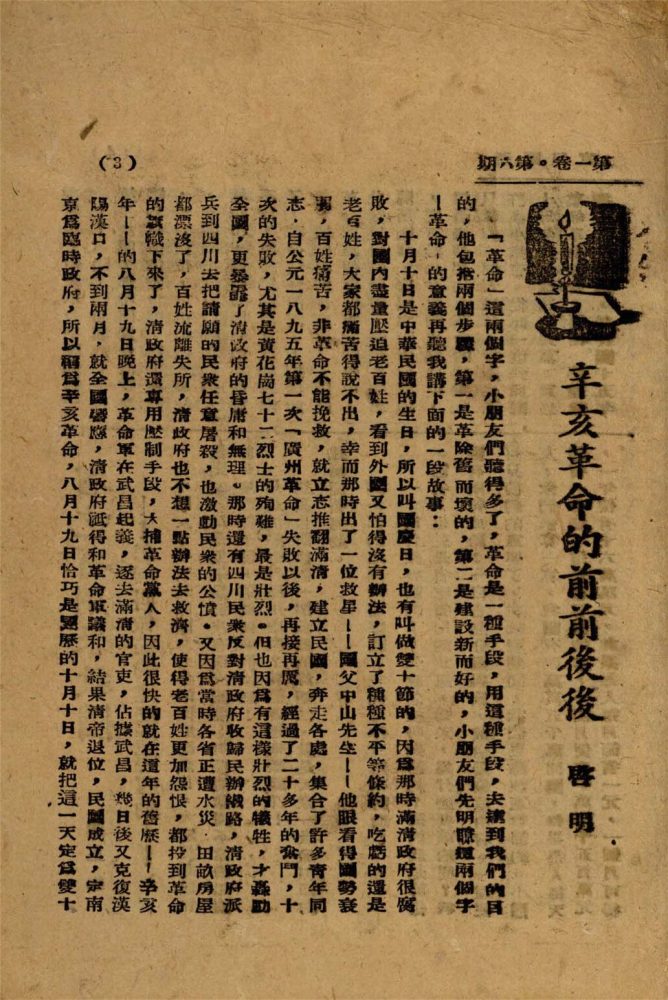 第一卷。第六期
(3)
辛亥革命的前前後後
啓明
「革命」這兩個字，小朋友們聽得多了，革命是一種手段，用這種手段，去達到我們的目
的，他包括兩個步驟，第一是革除舊而壞的，第二是建設新而好的，小朋友們先明瞭這兩個字
—革命—的意義再聽我講下面的一段故事：
十月十日是中華民國的生日，所以叫國慶日，也有叫做雙十節的，因爲那時滿清政府很腐
敗，對國內盡量壓迫老百姓，看到外國又怕得沒有辦法，訂立了種種不平等條約，吃虧的還是
老百姓，大家都痛苦得說不出，幸而那時出了一位救星——國父中山先生——他眼看得國勢衰
弱，百姓痛苦，非革命不能挽救，就立志推翻滿清，建立民國，奔走各處，集合了許多青年同
志，自公元一八九五年第一次「廣州革命」失敗以後，再接再厲，經過了二十多年的奮鬥，十
次的失敗，尤其是黃花崗七十二烈士的殉難，最是壯烈。但也因爲有這樣壯烈的犧牲，才轟動
全國，更暴露了清政府的昏庸和無理。那時還有四川民衆反對清政府收歸民辦鐵路，清政府派
兵到四川去把請願的民衆任意屠殺，也激動民衆的公憤。又因爲當時各省正遭水災，田畝房屋
都漂沒了，百姓流離失所，清政府也不想一點辦法去救濟，使得老百姓更加怨恨，都投到革命
的旗幟下來了，清政府還專用壓制手段，大捕革命黨人，因此很快的就在這年的舊歷——辛亥
年——的八月十九日晚上，革命軍在武昌起義，逐去滿清的官吏，佔據武昌，幾日後又克復漢
陽漢口，不到兩月，就全國響應，清政府祗得和革命軍議和，結果清帝退位，民國成立，定南
京爲臨時政府，所以稱爲辛亥革命，八月十九日恰巧是國歷的十月十日，就把這一天定爲雙十